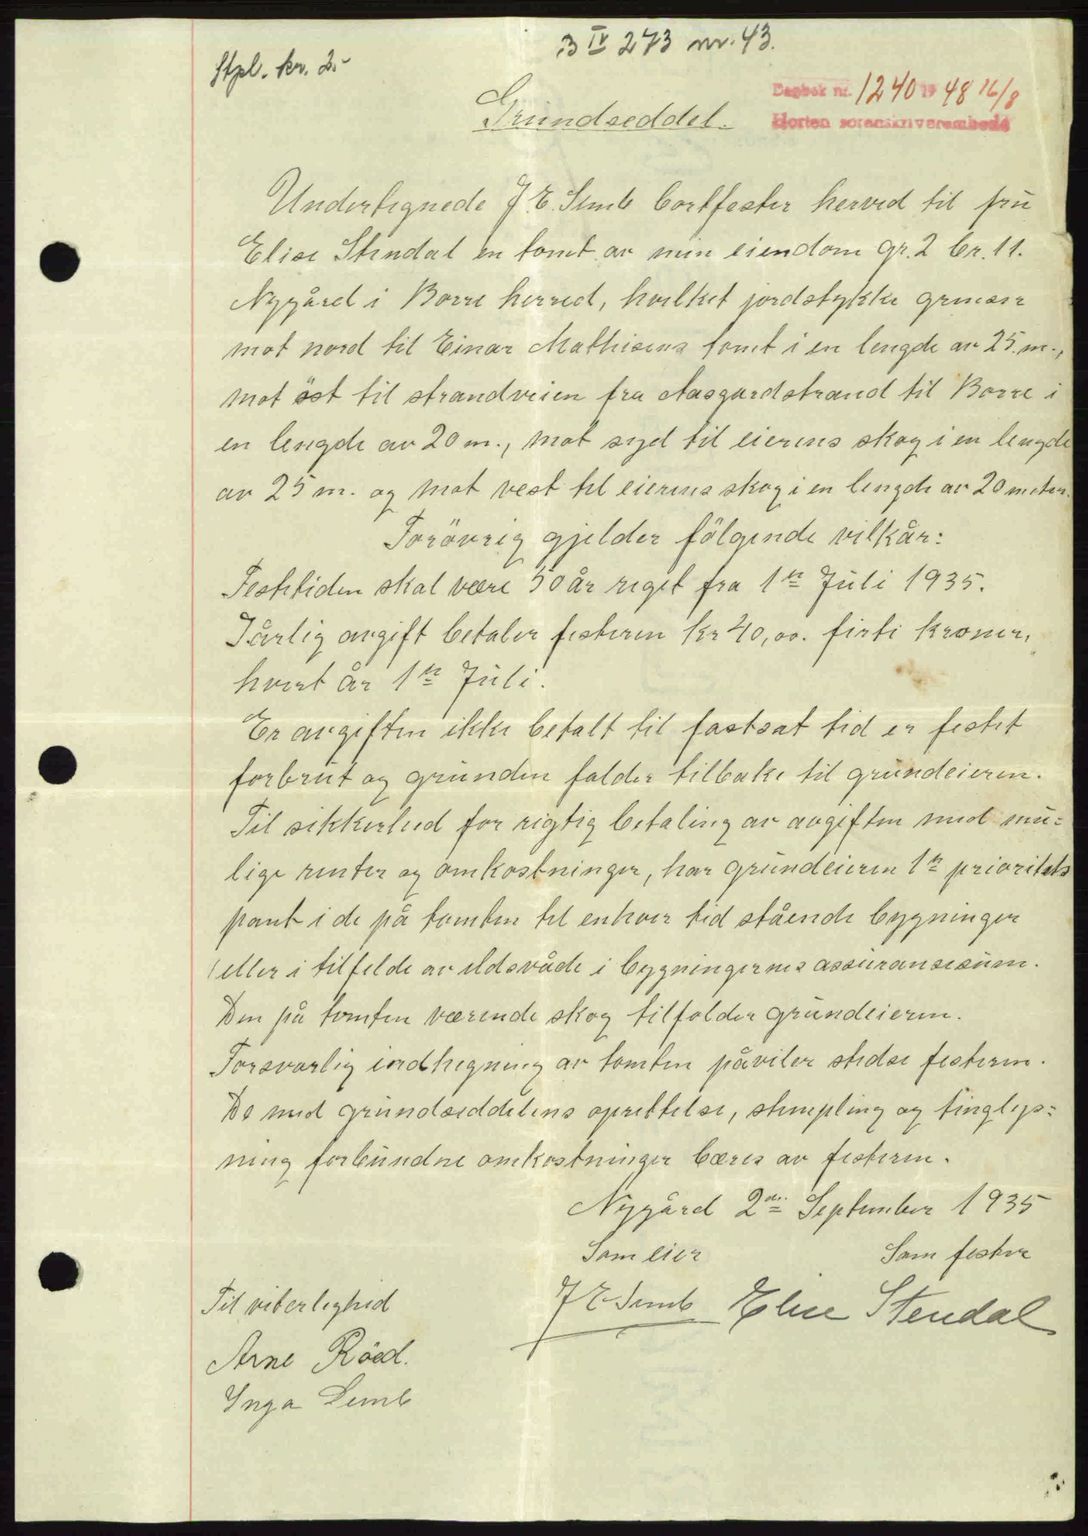 3 IV 273 nr. 43.
Stpl. kr. 2.-
Dagbok nr. 1240 19 48 16/8
Horten sorenskriverembede
Grundseddel.
Undertegnede J. E. Semb bortfester herved til fru
Elise Stendal en tomt av min eiendom gr. 2 br. 11.
Nygård i Borre herred, hvilket jordstykke grenser
mot nord til Einar Mathisens tomt i en lengde av 25 m.,
mot öst til strandveien fra Aasgardstrand til Borre i
en lengde av 20 m., mot syd til eierens skog i en lengde
av 25 m. og mot vest til eierens skog i en lengde av 20 meter.
Forövrig gjelder fölgende vilkår:
Festetiden skal være 50 år reget fra 1ste Juli 1935.
I årlig avgift betaler festeren kr 40,00. firti kroner,
hvert år 1ste Juli.
Er avgiften ikke betalt til fastsat tid er festet
forbrut og grunden falder tilbake til grundeieren.
Til sikkerhed for rigtig betaling av avgiften med mu=
lige renter og omkostninger, har grundeieren 1ste prioritets
pant i de på tomten til enhver tid stående bygninger
(eller i tilfelde av ildsvåde i bygningernes assuransesum.
Den på tomten værende skog tilfalder grundeieren.
Forsvarlig indhegning av tomten påviler stedse festeren.
De med grundseddelens oprettelse, stempling og tinglys=
ning forbundne omkostninger bæres av festeren.
Nygård 2den September 1935
Som eier Som fester
J E Semb Elise Stendal
Til viterlighed
Arne Röed.
Inga Semb